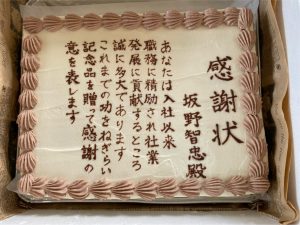 感謝状
坂野智忠殿
あなたは入社以来
職務に精励され社業
発展に貢献するところ
誠に多大であります
これまでの功をねぎらい
記念品を贈って感謝の
意を表します